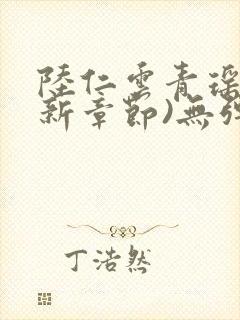 陸仁雲青瑶
新章節)無彈
丁浩然